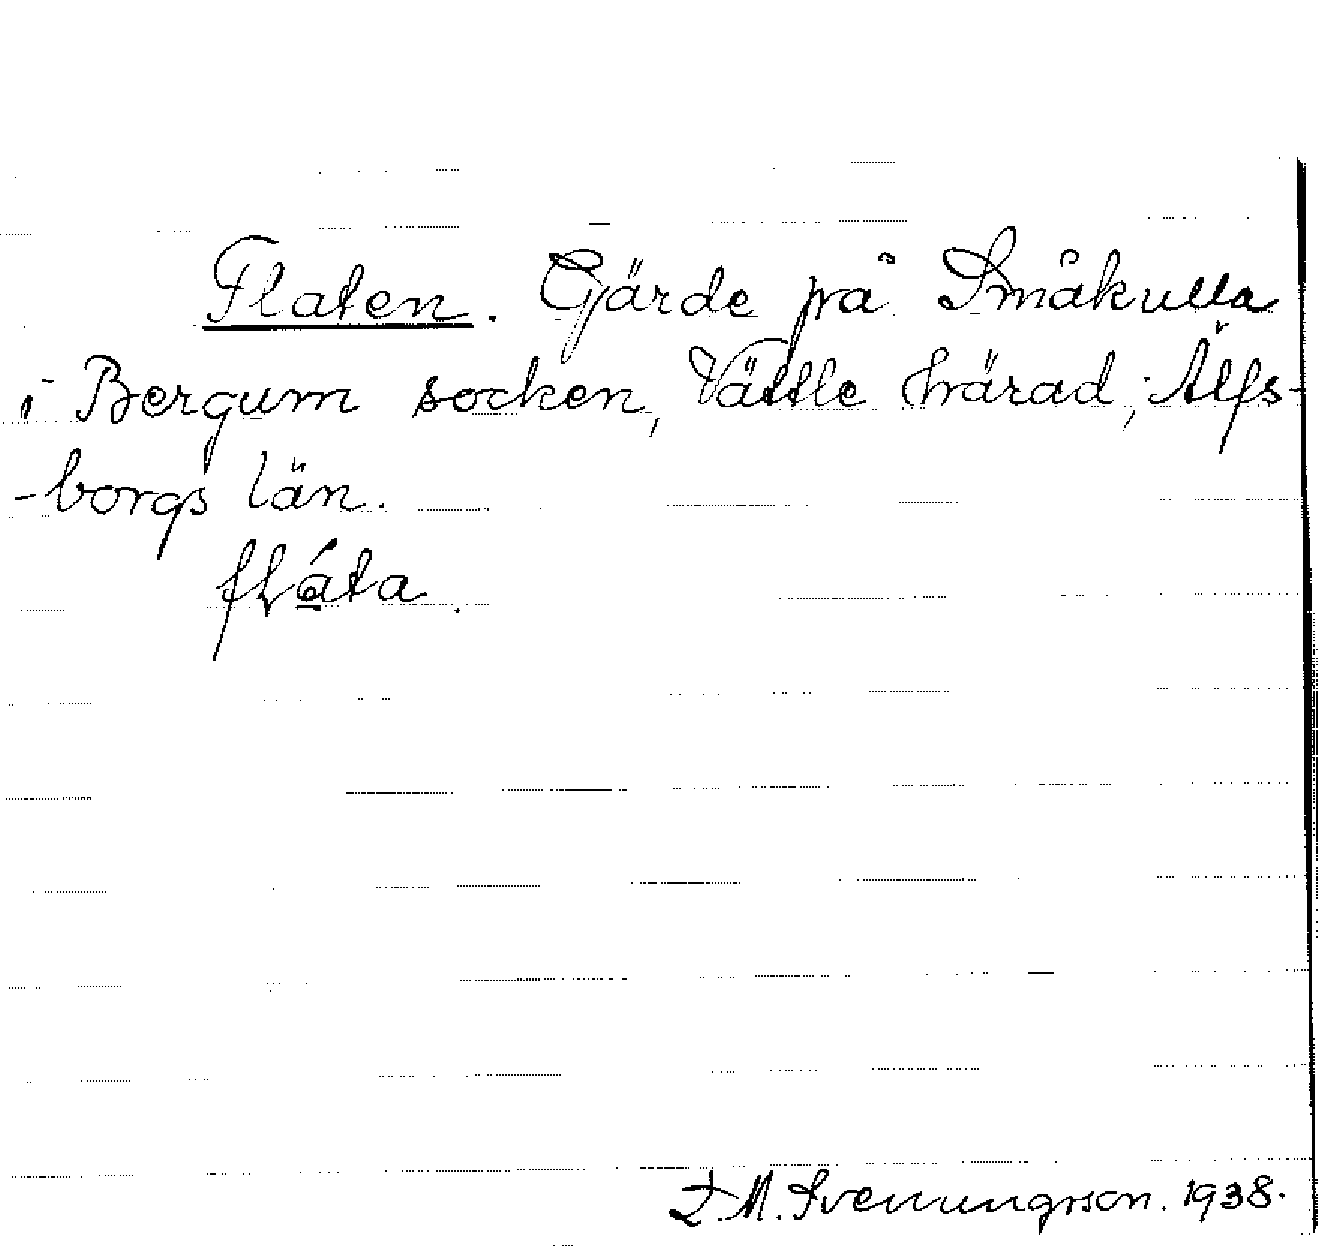 Flaten. Gärde på Småkulla
i Bergum socken, Vättle härad, Älfs-
-borgs län.
fláta.
D.M. Svenungsson. 1938.